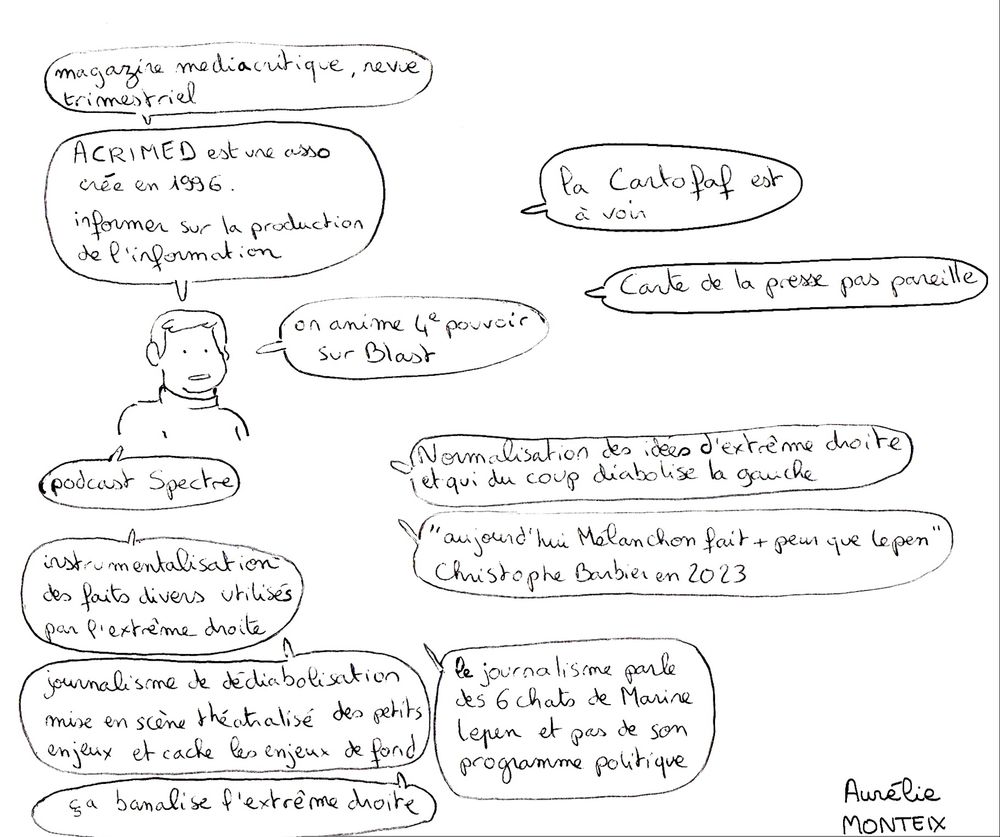 magazine mediacritique, revue
trimestriel
ACRIMED est une asso
crée en 1996.
informer sur la production
de l'information
la Cartofaf est
à voir
Carte de la presse pas pareille
on anime 4e pouvoir
sur Blast
podcast Spectre
Normalisation des idées d'extrême droite
et qui du coup diabolise la gauche
"aujourd'hui Mélanchon fait + peur que lepen"
Christophe Barbier en 2023
instrumentalisation
des faits divers utilisés
par l'extrême droite
journalisme de dédiabolisation
mise en scène théatralisé des petits
enjeux et cache les enjeux de fond
le journalisme parle
des 6 chats de Marine
lepen et pas de son
programme politique
ça banalise l'extrême droite
Aurélie
MONTEIX